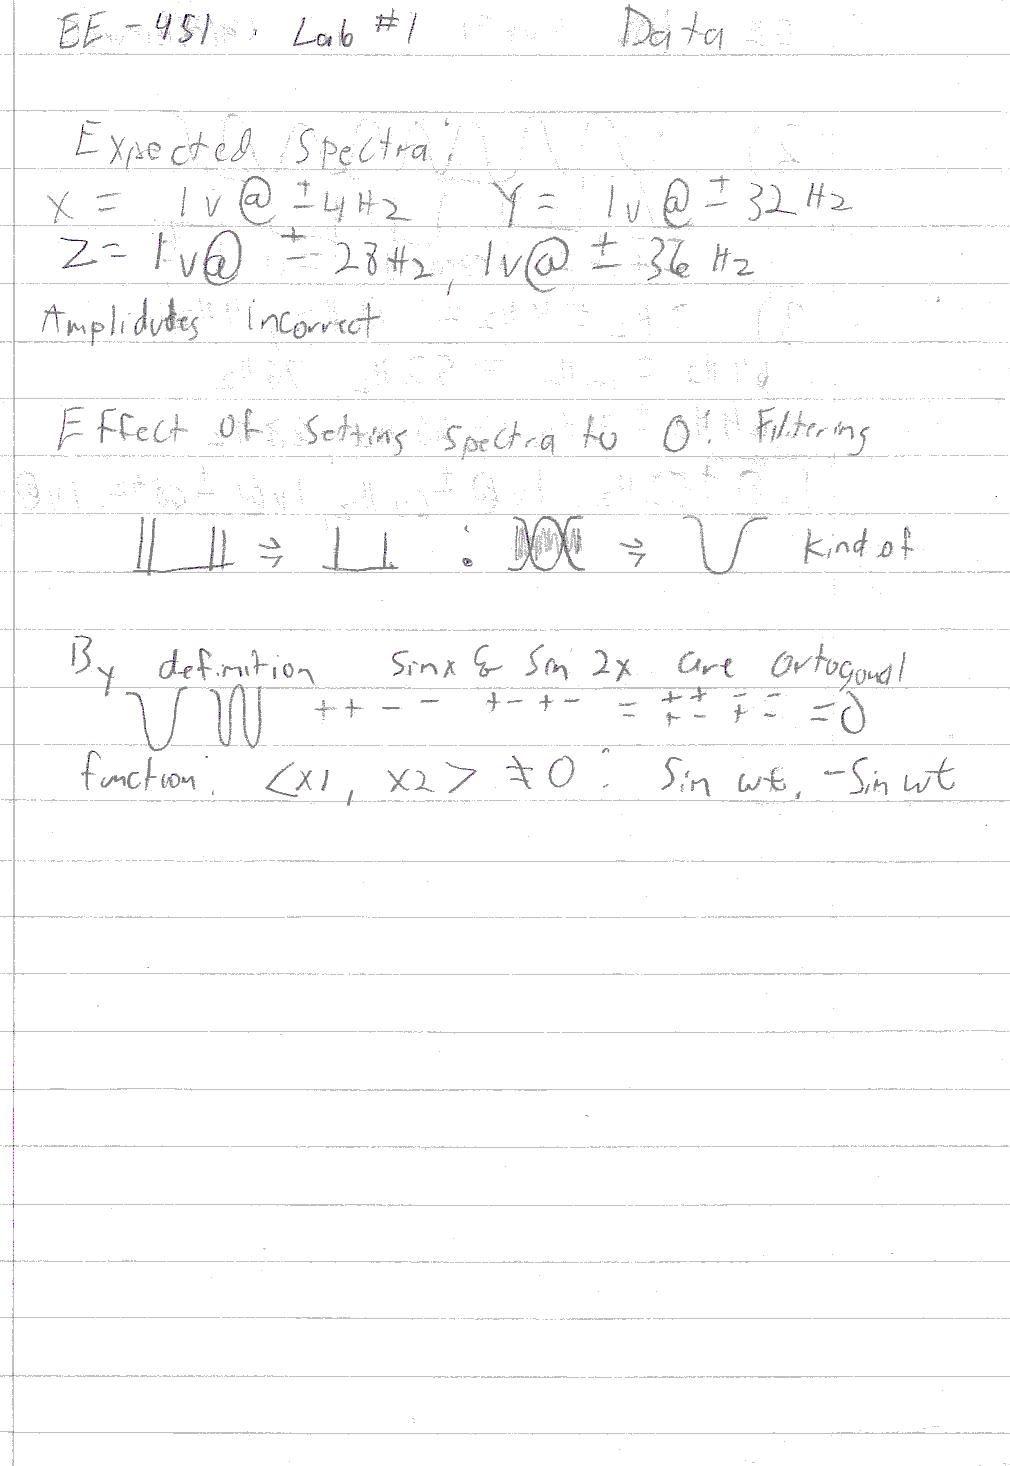 EE - 451. Lab #1 Data
Expected Spectra:
X = 1v @ ±4Hz Y = 1v @ ±32Hz
Z = 1v@ ± 28Hz, 1v@ ± 36 Hz
Amplidutes incorrect
Effect of setting spectra to 0: Filtering
⇒ : ⇒ kind of
By definition Sinx & Sin 2x are ortogonal
+ + - - + - + - = ++ ++ -+ -- = 0
function: <x1, x2> ≠ 0: Sin wt, -Sin wt